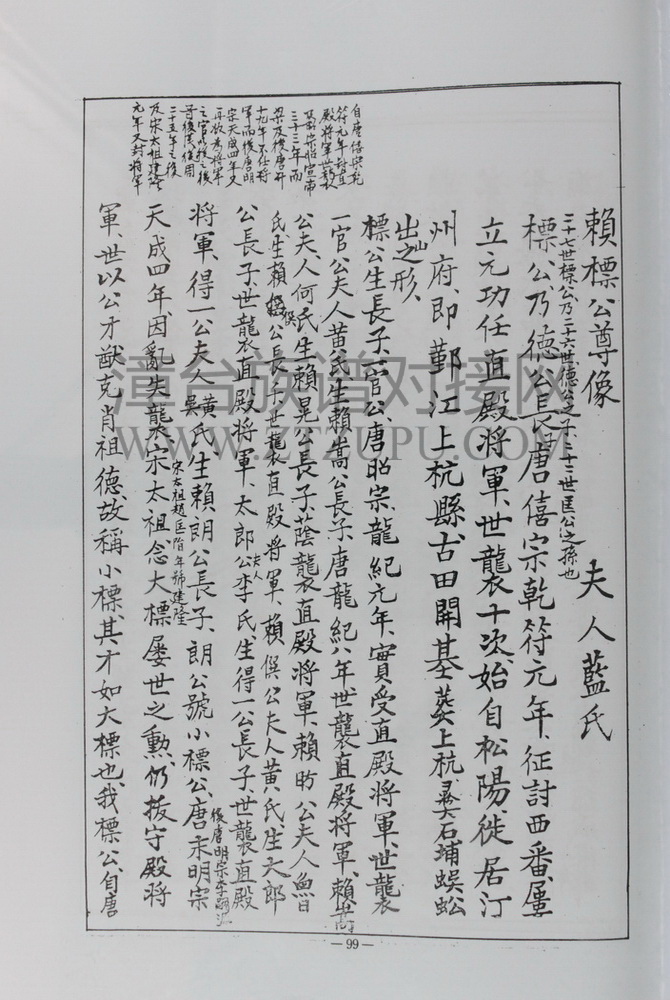 賴標公尊像　夫人藍氏
二十七世標公乃二十六世德公之子二十三世匡公之孫也
標公乃德公長唐僖宗乾符元年、征討西番、屢
立元功任直殿將軍、世襲十次、始自松陽、徙居汀
州府、即鄞江上杭縣古田開基葬上杭、彛石埔蜈蚣
出山之形、
標公生長子一官公唐昭宗、龍紀元年、實受直殿將軍、世襲
一官公夫人黃氏生賴嵩公長子、唐龍紀八年世襲直殿將軍、賴嵩
公夫人何氏生賴晃公長子、蔭襲直殿將軍、賴昉公夫人魯
氏生賴僎公長子、世襲直殿將軍、賴僎公夫人黃氏生大郎
公長子、世襲直殿將軍、太郎公夫人李氏、生得一公長子、世襲直殿
將軍、得一公夫人黃吳氏、生賴朗公長子、朗公號小標公、唐末明宗
後唐明宗李嗣源
天成四年、因亂失襲、宋太祖念大標屢世之勳、仍拔守殿將
宋太祖趙匡胤年號建隆
軍、世以公才猷克肖祖德、故稱小標、其才如大標也、我標公、自唐
自唐僖宗乾
符元年封直
殿將軍世襲
至昭宗昭宣帝
三十三年而
梁及後唐、
十九年不任將
軍而後唐明
宗天成四年又
再啟為將軍
之官
晉後漢後周
二十五年之後
及宋太祖建隆
元年又封將軍
漳台族谱对接网
WWW.ZTZUPU.COM
—99—